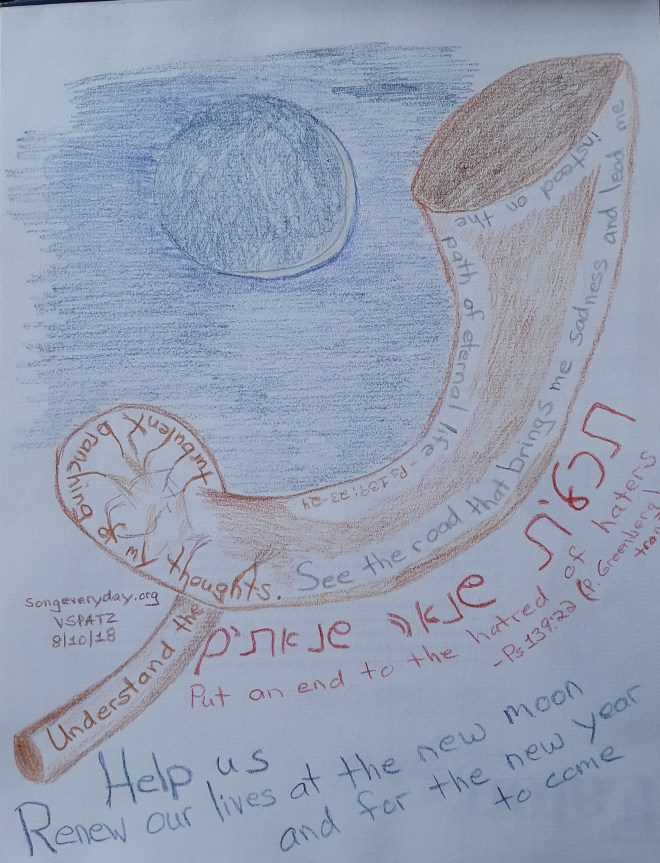 Understand the
turbulent
branching of my
thoughts.
See the road that brings me sadness and lead me
instead on the
path of eternal life - Ps 139:23-24
תכלית שנאה שנאתים
Put an end to the hatred of haters
- Ps 139:22 (P. Greenberg
Songeveryday.org
VSPATZ
8/10/18
Help us
Renew our lives at the new moon
and for the new year
to come